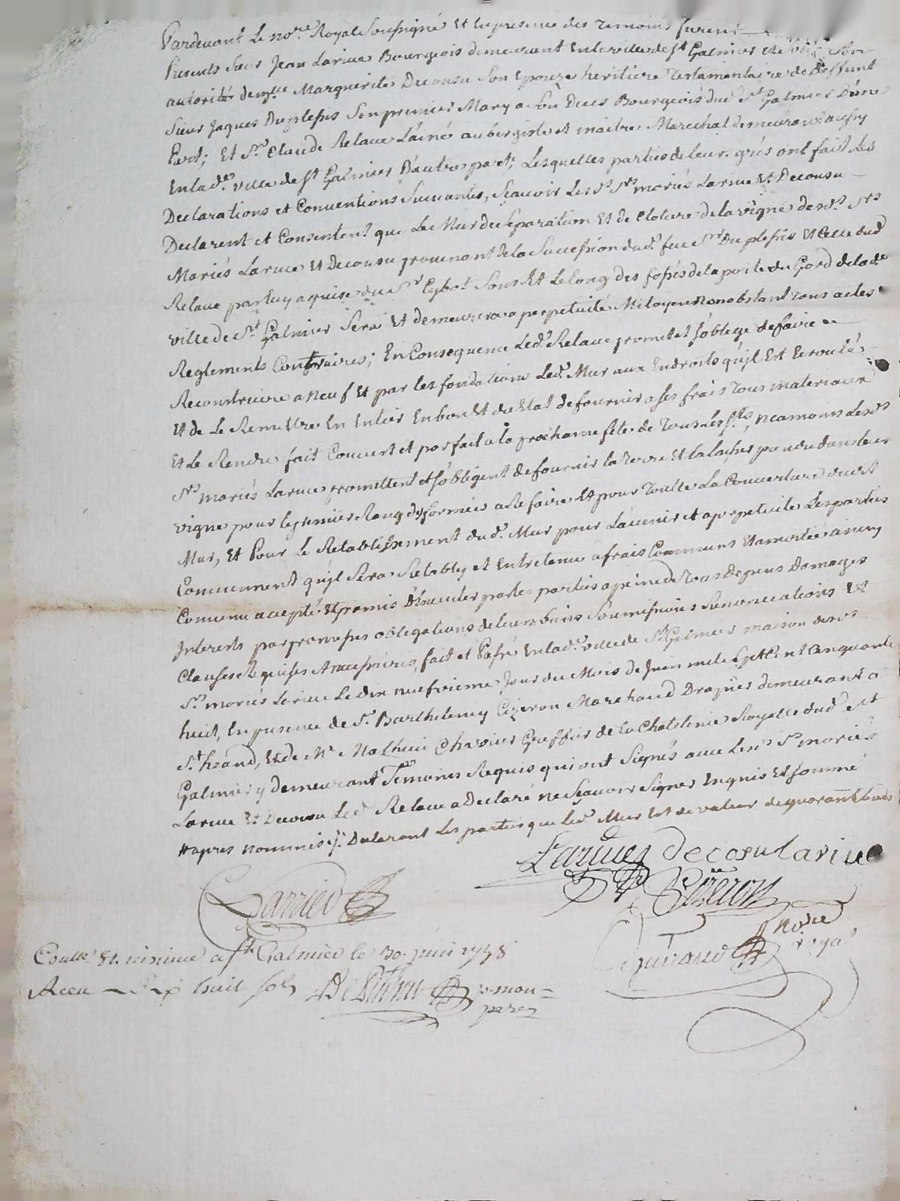 Pardevant Le no.re Royal Soussigné Et En presence des Temoins furent
Presents Sieur Jean Larue Bourgeois demeurant En la ville de St Galmier Et de Son
autorité dem.lle Marguerite Decousu Son Epouze heritiere Testamentaire de Deffunt
Sieur Jaques Duplessis Son premier Mary a Son Deces Bourgeois dud. St Galmier D'une
Part; Et Sr. Claude Relave L'ainé aubergiste et maitre Marechal demeurant aussy
En lad.e ville de St Galmier D'autre part; Lesquelles parties de Leur grés ont fait Les
Declarations et Conventions Suivantes, Scavoir Les d.s Srs mariés Larue Et Decousu
Declarent et Consentent que Le Mur de Separation Et de Cloture de la vigne desd. Srs
Mariés Larue Et Decousu provenant de la Succession dud. feu Sr Duplessis Et Celle dud
Relave par luy aquise du Sr Cybot Sous Et Le long des fossés de la porte du Gord de lad.e
ville de St Galmier Sera Et demeurera a perpetuité Mitoyen nonobstant Tous actes
Reglements Contraires; En Consequence Led. Relave promet et S'oblige de faire
Reconstruire a Neuf Et par les fondations Led. Mur aux Endroits qu'il Est Ecroulé
Et de Le Remettre En Entier En bon Et du Etat de fournir a ses frais Tous materiaux
Et Le Rendre fait Couvert et parfait a la prochaine fête de Tous Les Sts, neamoins Lesd.s
Srs mariés Larue promettent et s'obligent de fournir la Terre Et la laisser prendre dans leur
vigne pour le premier Rang a Le faire Et pour Toutte La Couverture dud.
Mur, Et Pour Le Retablissement dud. Mur pour L'avenir et a perpetuité Les parties
Conviennent qu'il Sera Retably et Entretenu a frais Communs Et a moitié ainsy
Convenu accepté Et promis d'Executer par les parties a peine de Tous depens Domages
Interets par promesses obligations de leurs biens Soumissions Renonciations Et
Clauses Requises & necessaires, fait et Passé En lad. ville de St Galmier maison desd.
Srs mariés Larue Le dix neufvieme Jour du Mois de Juin mil Sept Cent Cinquante
huit, En presence de Sr. Barthelemy Cizeron Marchand Drapier demeurant a
St heand, Et de Me Mathieu Greffier de la Chatelenie Royalle dud. St
Galmier y demeurant Temoins Requis qui ont Signés avec Lesd. Srs mariés
Larue Et Decousu Led. Relave a Declaré ne Scavoir Signer Enquis Et Sommé
apres nommés Declarant Les parties que Led. Mur Est de valeur de quarante livres
Larue decousu larue
Cizeron
no.re royal
Conllé Et insinué a St Galmier le 30 juin 1758
Receu huit sols